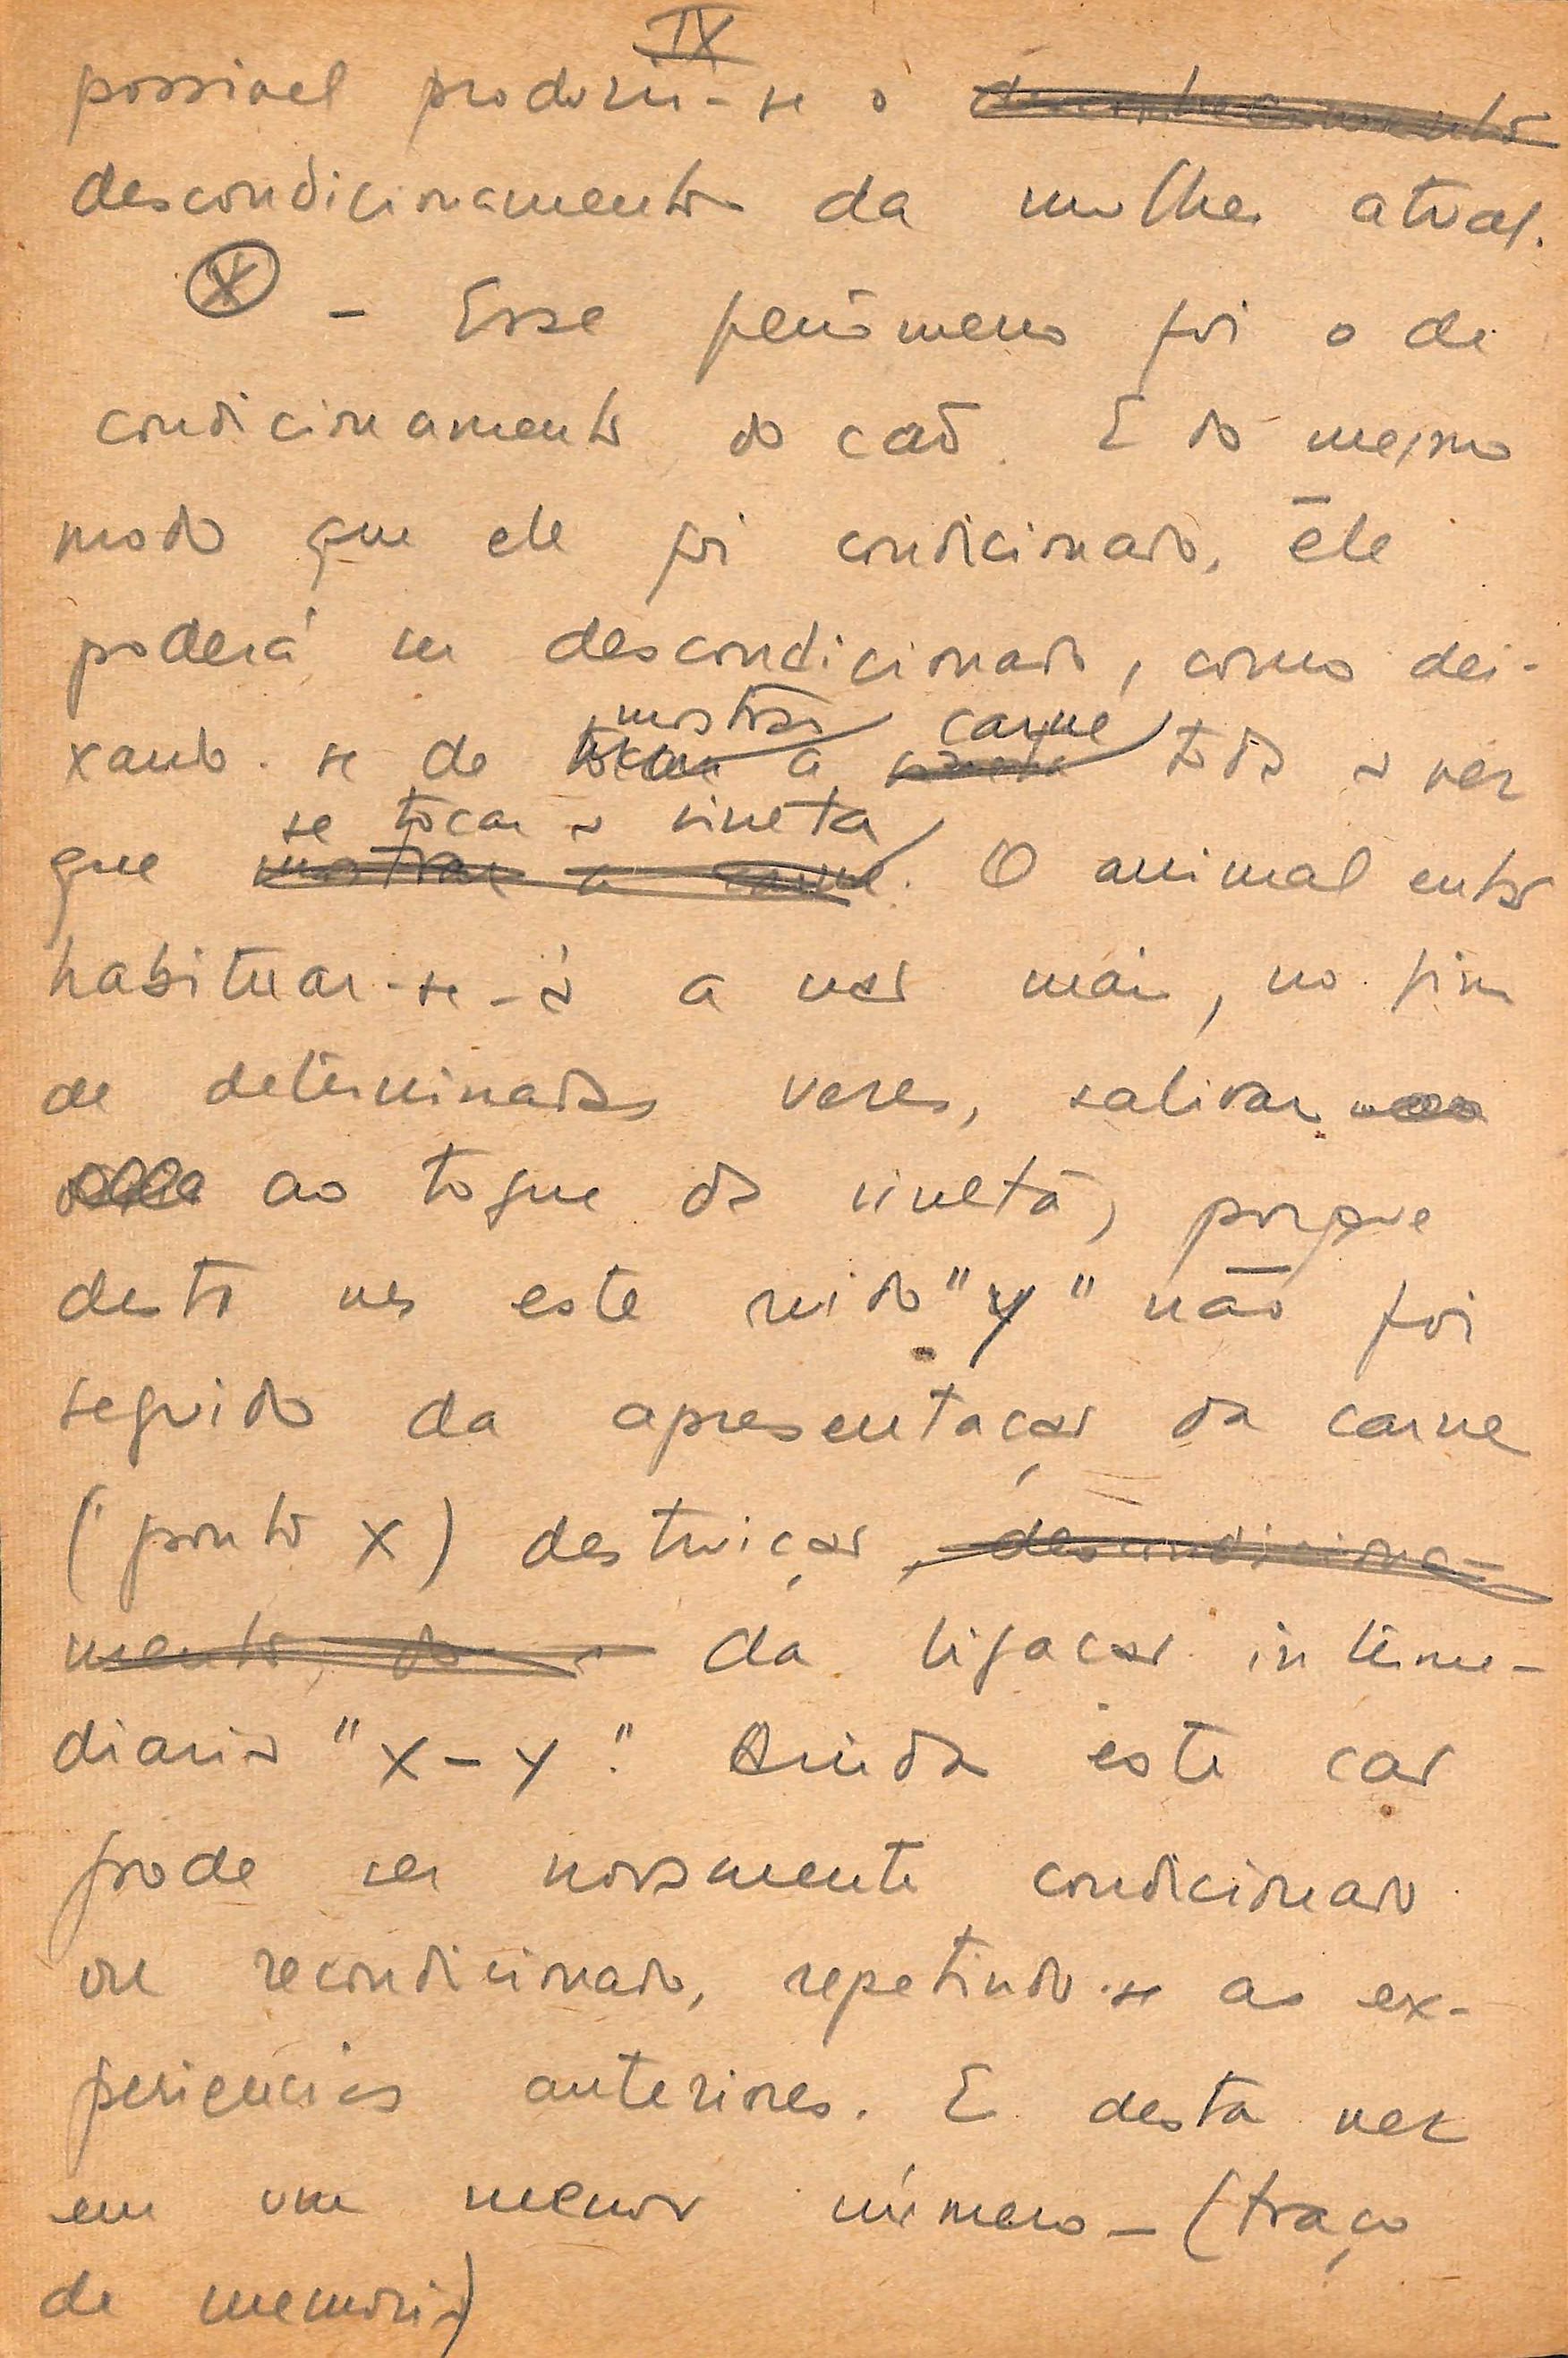 IX
possivel produzir-se o
descondicionamento da mulher atual.
X - Esse fenômeno foi o de
condicionamento do cão. E do mesmo
modo que ele foi condicionado, êle
poderá ser descondicionado, como dei-
mostrar carne
xando-se de tocar a sineta toda a vez
se tocar a sineta
que mostrar a carne. O animal entao
habituar-se-á a nao mais, no fim
de determinadas vezes, salivar
ao toque da sineta, porque
desta vez este ruido "y" não foi
seguido da apresentaçao da carne
(ponto x) destruiçao, descondiciona-
mento, do da ligaçao interme-
diaria "x-y." Ainda este cao
pode ser novamente condicionado
ou recondicionado, repetindo-se as ex-
periencias anteriores. E desta vez
em um menor número - (traço
de memoria)